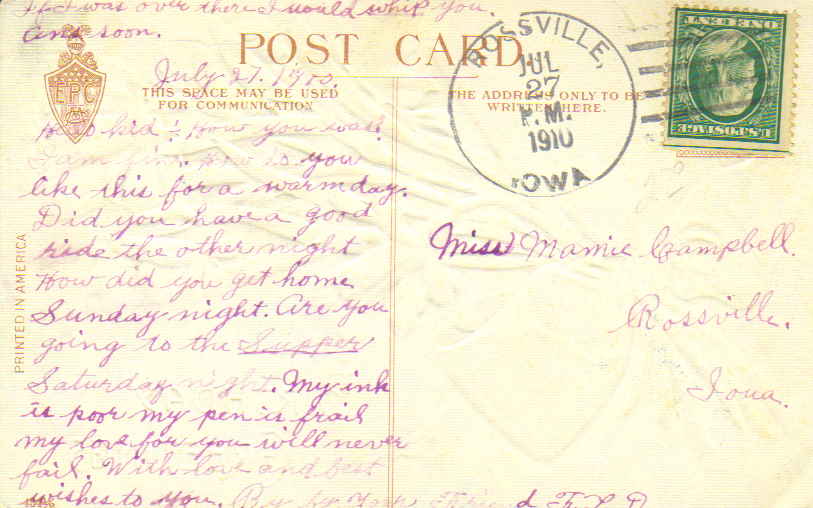 If I was over there I would whip you.
Ans soon.
POST CARD
EPC
July 27. 1910.
THIS SPACE MAY BE USED
FOR COMMUNICATION
THE ADDRESS ONLY TO BE
WRITTEN HERE.
ROSSVILLE,
JUL
27
P.M.
1910
IOWA
U.S. POSTAGE
ONE CENT
Hello kid How you was?
I am fine. How do you
like this for a warm day.
Did you have a good
ride the other night
How did you get home
Sunday night. Are you
going to the Supper
Saturday night. My ink
is poor my pen is frail
my love for you will never
fail. With love and best
wishes to you. By Your Friend
Miss Mamie Campbell.
Rossville.
Iowa.
PRINTED IN AMERICA